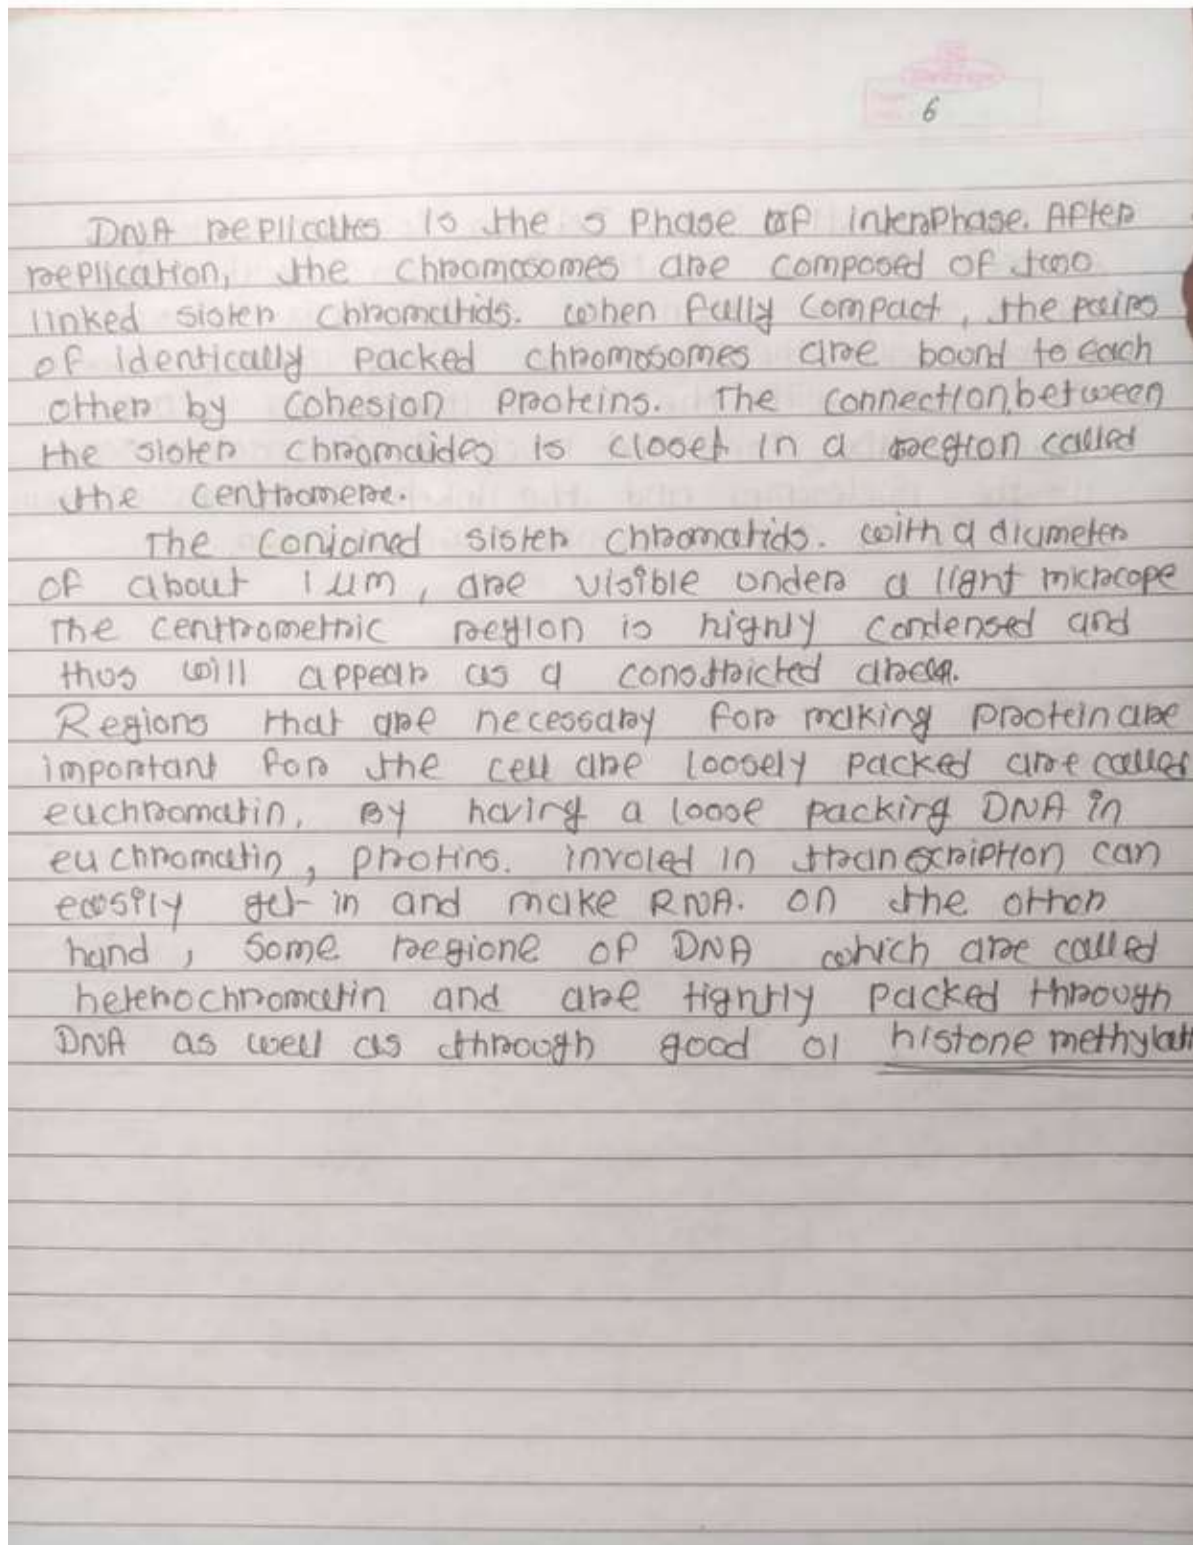 6
DNA replicates is the s phase of interphase. After
replication, the chromosomes are composed of two
linked sister chromatids. when fully compact, the pairs
of identically packed chromosomes are bound to each
other by cohesion proteins. The connection between
the sister chromaides is closet in a region called
the centromere.
The conjoined sister chromatids. with a diameter
of about 1 um, are visible under a light micrcope
The centrometric region is highly condensed and
thus will appear as a constricted area.
Regions that are necessary for making protein are
important for the cell are loosely packed are called
euchromatin. By having a loose packing DNA in
euchromatin, protins. involed in transcription can
easily get in and make RNA. on the other
hand, some regione of DNA which are called
heterochromatin and are tightly packed through
DNA as well as through good ol histone methylat